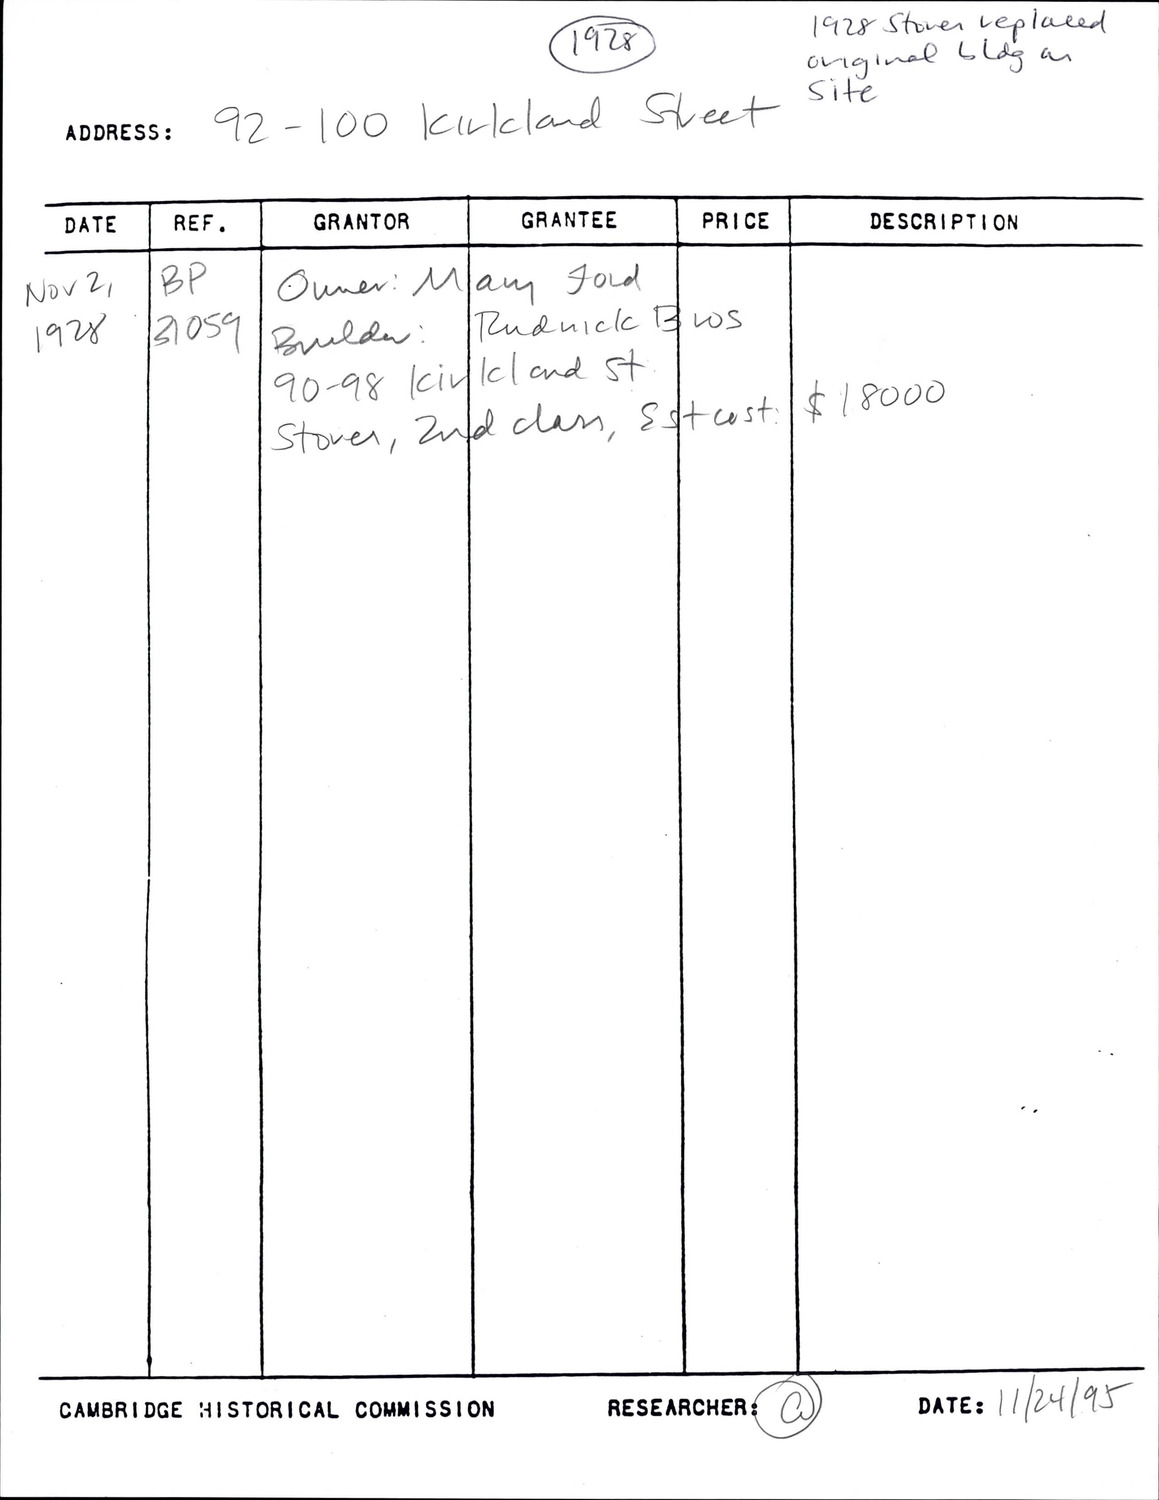 1928
1928 Stores replaced
original bldg on
site
ADDRESS: 92-100 Kirkland Street
DATE REF. GRANTOR GRANTEE PRICE DESCRIPTION
Nov 2, BP Owner: Mary Ford
1928 31059 Builder: Rudnick Bros
90-98 Kirkland St
Stores, 2nd class, Est cost: $18000
CAMBRIDGE HISTORICAL COMMISSION RESEARCHER: DATE: 11/24/95